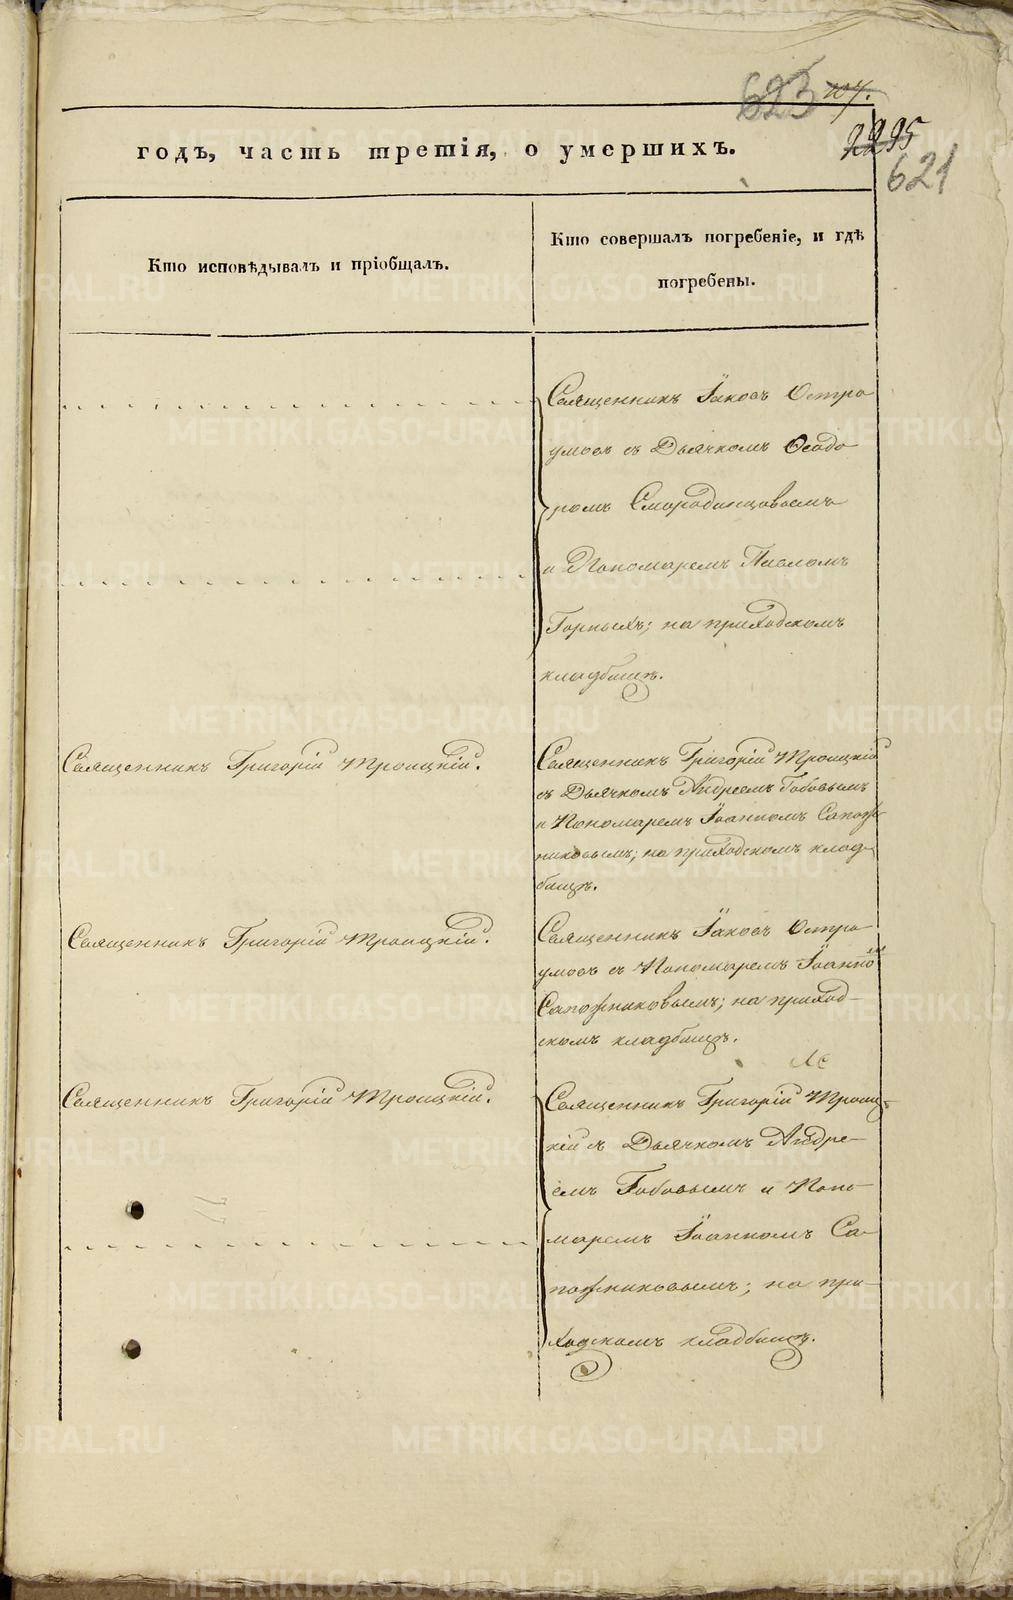 623 107.
2295
621
годъ, часть третія, о умершихъ.
Кто исповѣдывалъ и пріобщалъ.
Кто совершалъ погребеніе, и гдѣ
погребены.
Священникъ Іаковъ Остро
умовъ съ Дьячкомъ Ѳеодо
ромъ Смородинцовымъ
и Пономаремъ Павломъ
Горныхъ; на приходскомъ
кладбищѣ.
Священникъ Григорій Троицкій.
Священникъ Григорій Троицкій
съ Дьячкомъ Андреемъ Бобовымъ
и Пономаремъ Іоанномъ Сапож
никовымъ; на приходскомъ клад
бищѣ.
Священникъ Григорій Троицкій.
Священникъ Іаковъ Остро
умовъ съ Пономаремъ Іоанномъ
Сапожниковымъ; на приход-
скомъ кладбищѣ.
Священникъ Григорій Троицкій.
Священникъ Григорій Троиц-
кій съ Дьячкомъ Андре-
емъ Бобовымъ и Поно-
маремъ Іоанномъ Са-
пожниковымъ; на при-
ходскомъ кладбищѣ.
METRIKI.GASO-URAL.RU